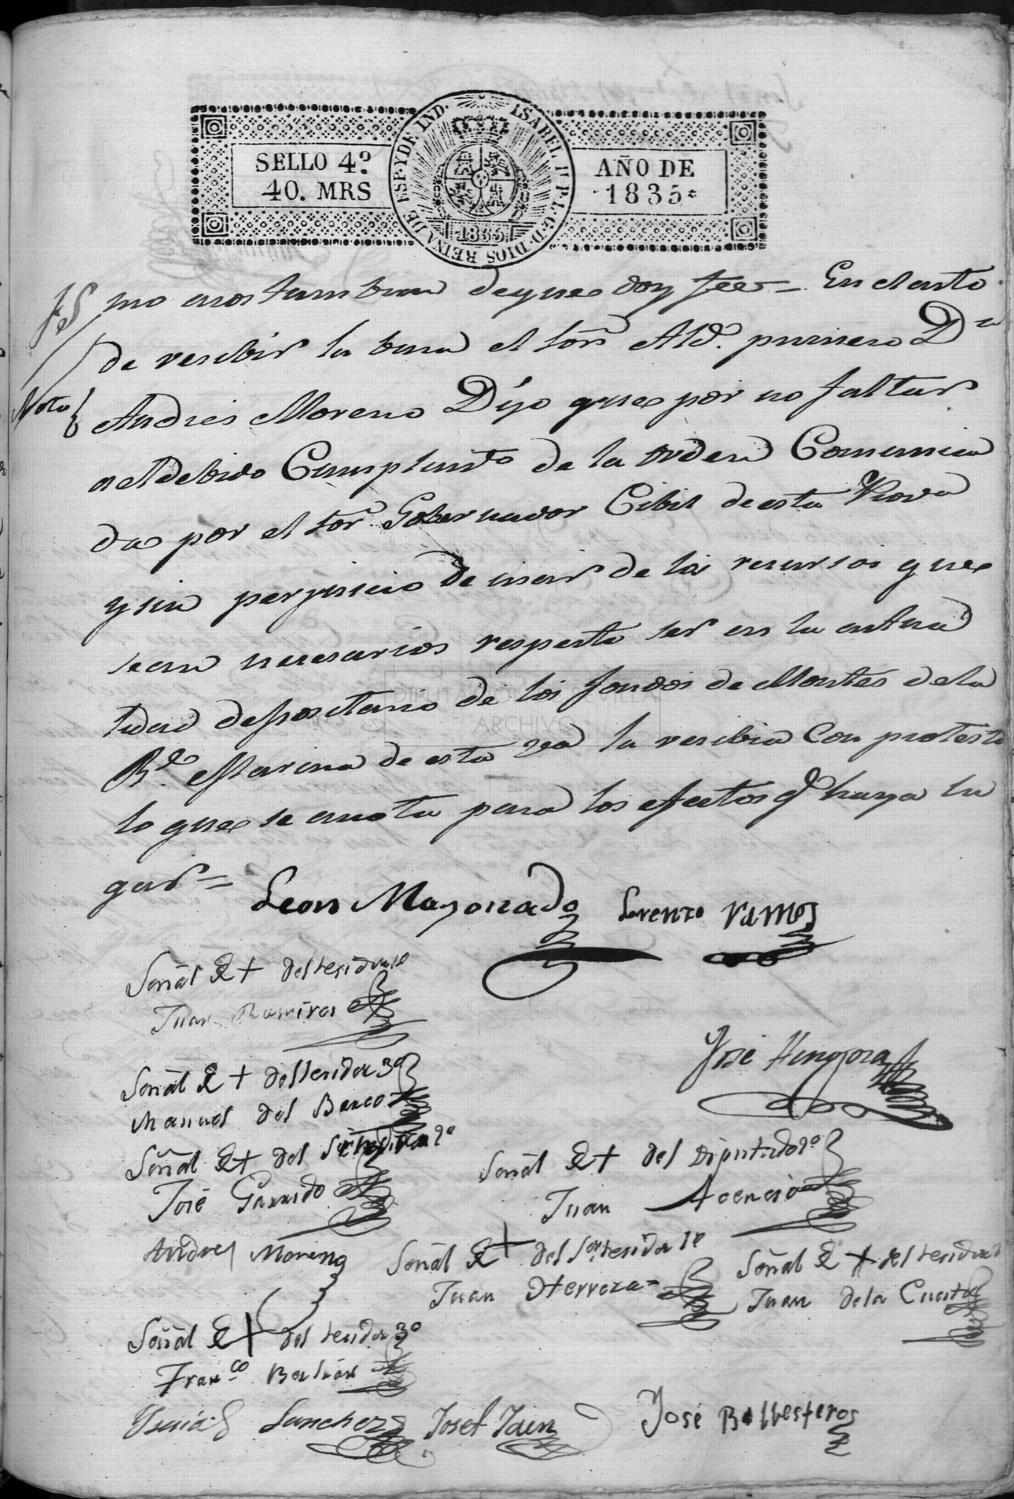 SELLO 4º
40. MRS
ISABEL II P. L. G. D DIOS REINA DE ESP. Y DE IND.
1835
AÑO DE
1835
mo acostumbran deque doy fee = En el acto
de recibir la bara el Sor Ald.e primero Dn
Nota
Andres Moreno Dijo que por no faltar
al debido Cumplimto de la orden Comunica
da por el Sor Gobernador Cibil de esta Prova
y sin perjuicio de usar de los recursos que
sean necesarios respecto ser en la actua
lidad depositario de los fondos de Montes de la
Rl Marina de esta va la recibia Con protesta
lo que se anota para los efectos q haya lu
gar =
Leon Mayorado
Lorenzo Ramos
Señal de + del residente
Juan Ramires
José Hinojosa
Señal de + del 3º
Manuel del Barco
Señal de + del 2º
José Garrido
Señal de + del Diputado 2º
Juan Acencio
Andres Moreno
Señal de + del 1º
Juan Herrera
Señal de + del
Juan de la Cuesta
Señal de + del 3º
Franco Beltrán
Sanchez
Josef Jaen
José Ballesteros
DIPUTACION DE SEVILLA
ARCHIVO